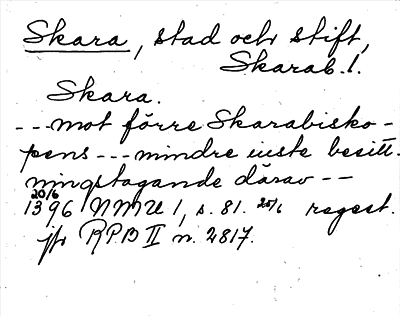 Skara, stad och stift,
Skarab. l.
Skara.
---mot förre Skarabisko-
pens---mindre iuste besitt-
ningstagande därav--
20/6
1396 NMU 1, s. 81. 20/6 regest.
jfr RPB II n. 2817.